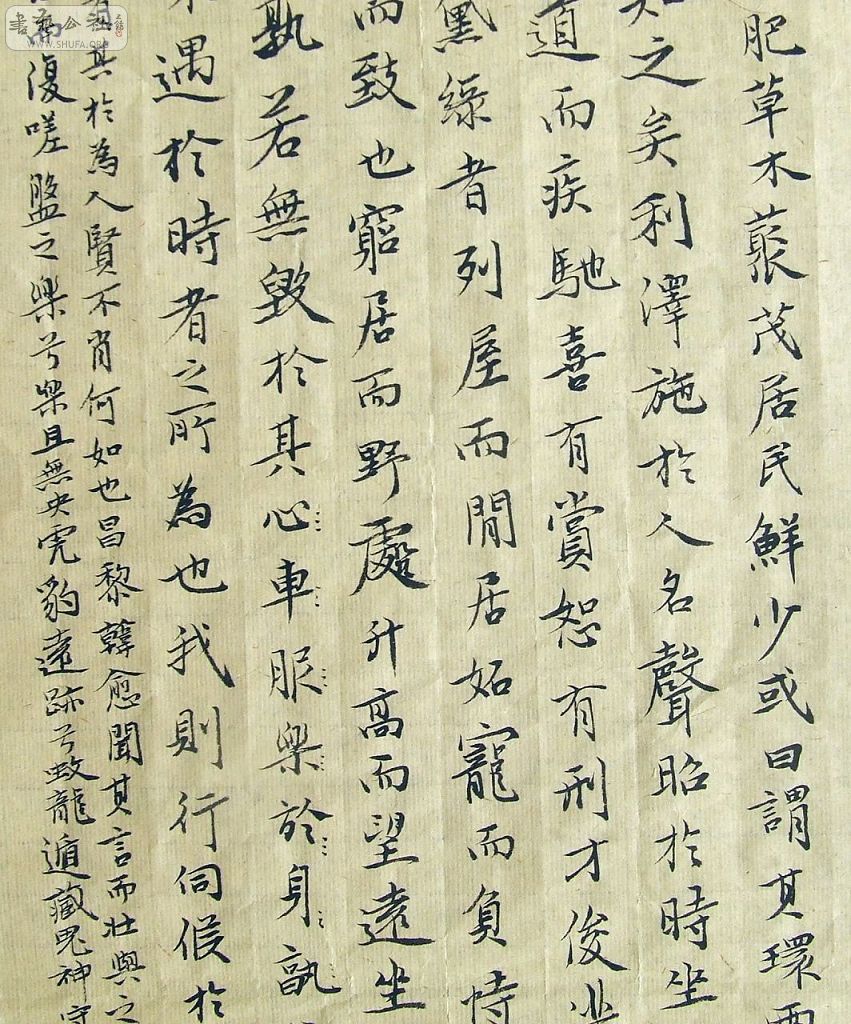 肥草木藂茂居民鮮少或曰謂其環兩
之矣利澤施於人名聲昭於時坐
道而疾馳喜有賞恕有刑才俊
黛綠者列屋而閒居妬寵而負恃
而致也窮居而野處升高而望遠坐
孰若無毀於其心車服樂於身孰
遇於時者之所為也我則行伺候於
其於為人賢不肖何如也昌黎韓愈聞其言而壯與之
復嗟盤之樂兮樂且無央虎豹遠跡兮蛟龍遁藏鬼神守
書藝公社
WWW.SHUFA.ORG